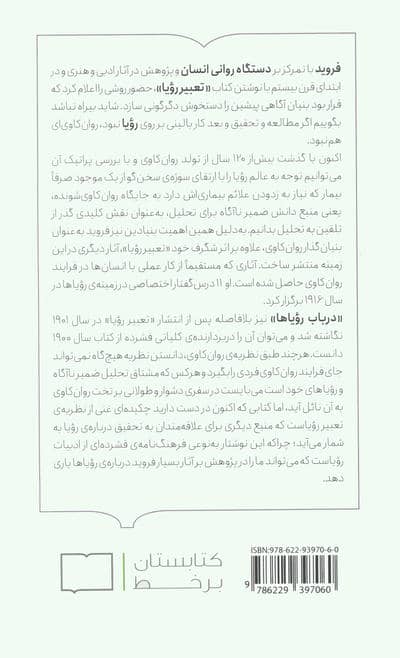 فروید با تمرکز بر دستگاه روانی انسان و پژوهش در آثار ادبی و هنری و در
ابتدای قرن بیستم با نوشتن کتاب «تعبیر رؤیا»، حضور روشی را اعلام کرد که
قرار بود بنیان آگاهی پیشین را دستخوش دگرگونی سازد. شاید بیراه نباشد
بگوییم اگر مطالعه و تحقیق و بعد کار بالینی بر روی رؤیا نبود، روان‌کاوی‌ای
هم نبود.
اکنون با گذشت بیش از ۱۲۰ سال از تولد روان‌کاوی و با بررسی پراتیک آن
می‌توانیم توجه به عالم رؤیا را با ارتقای سوژه‌ی سخن‌گو از یک موجود صرفاً
بیمار که نیاز به زدودن علائم بیماری‌اش دارد به جایگاه روان‌کاوی‌شونده،
یعنی منبع دانش ضمیر ناآگاه برای تحلیل، به‌عنوان نقش کلیدی گذر از
تلقین به تحلیل بدانیم. به‌دلیل همین اهمیت بنیادین نیز فروید به‌عنوان
بنیان‌گذار روان‌کاوی، علاوه بر اثر شگرف خود «تعبیر رؤیا»، آثار دیگری در این
زمینه منتشر ساخت. آثاری که مستقیماً از کار عملی با انسان‌ها در فرایند
روان‌کاوی حاصل شده است. او ۱۱ درس‌گفتار اختصاصی در زمینه‌ی رؤیاها در
سال ۱۹۱۶ برگزار کرد.
«درباب رؤیاها» نیز بلافاصله پس از انتشار «تعبیر رؤیا» در سال ۱۹۰۱
نگاشته شد و می‌توان آن را دربردارنده‌ی کلیاتی فشرده از کتاب سال ۱۹۰۰
دانست. هرچند طبق نظریه‌ی روان‌کاوی، دانستن نظریه هیچ‌گاه نمی‌تواند
جای فرایند روان‌کاوی فردی را بگیرد و هرکس که مشتاق تحلیل ضمیر ناآگاه
و رؤیاهای خود است می‌بایست در سفری دشوار و طولانی بر تخت روان‌کاوی
به آن نائل آید، اما کتابی که اکنون در دست دارید چکیده‌ای غنی از نظریه‌ی
تعبیر رؤیاست که منبع دیگری برای علاقه‌مندان به تحقیق درباره‌ی رؤیا به
شمار می‌آید؛ چراکه این نوشتار به‌نوعی فرهنگ‌نامه‌ی فشرده‌ای از ادبیات
رؤیاست که می‌تواند ما را در پژوهش بر آثار بسیار فروید درباره‌ی رؤیاها یاری
دهد.
ISBN: 978-622-93970-6-0
9 786229 397060
کتابستان
برخط